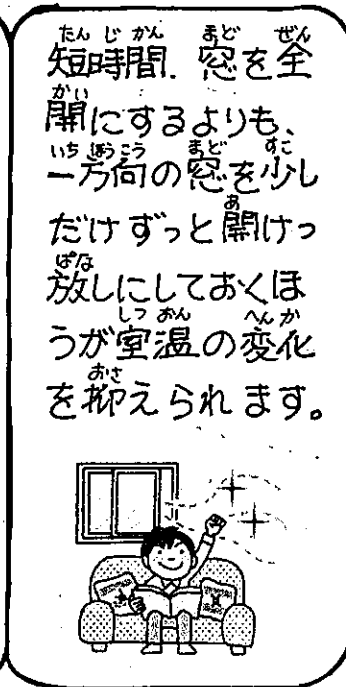 短時間、窓を全
開にするよりも、
一方向の窓を少し
だけずっと開けっ
放しにしておくほ
うが室温の変化
を抑えられます。